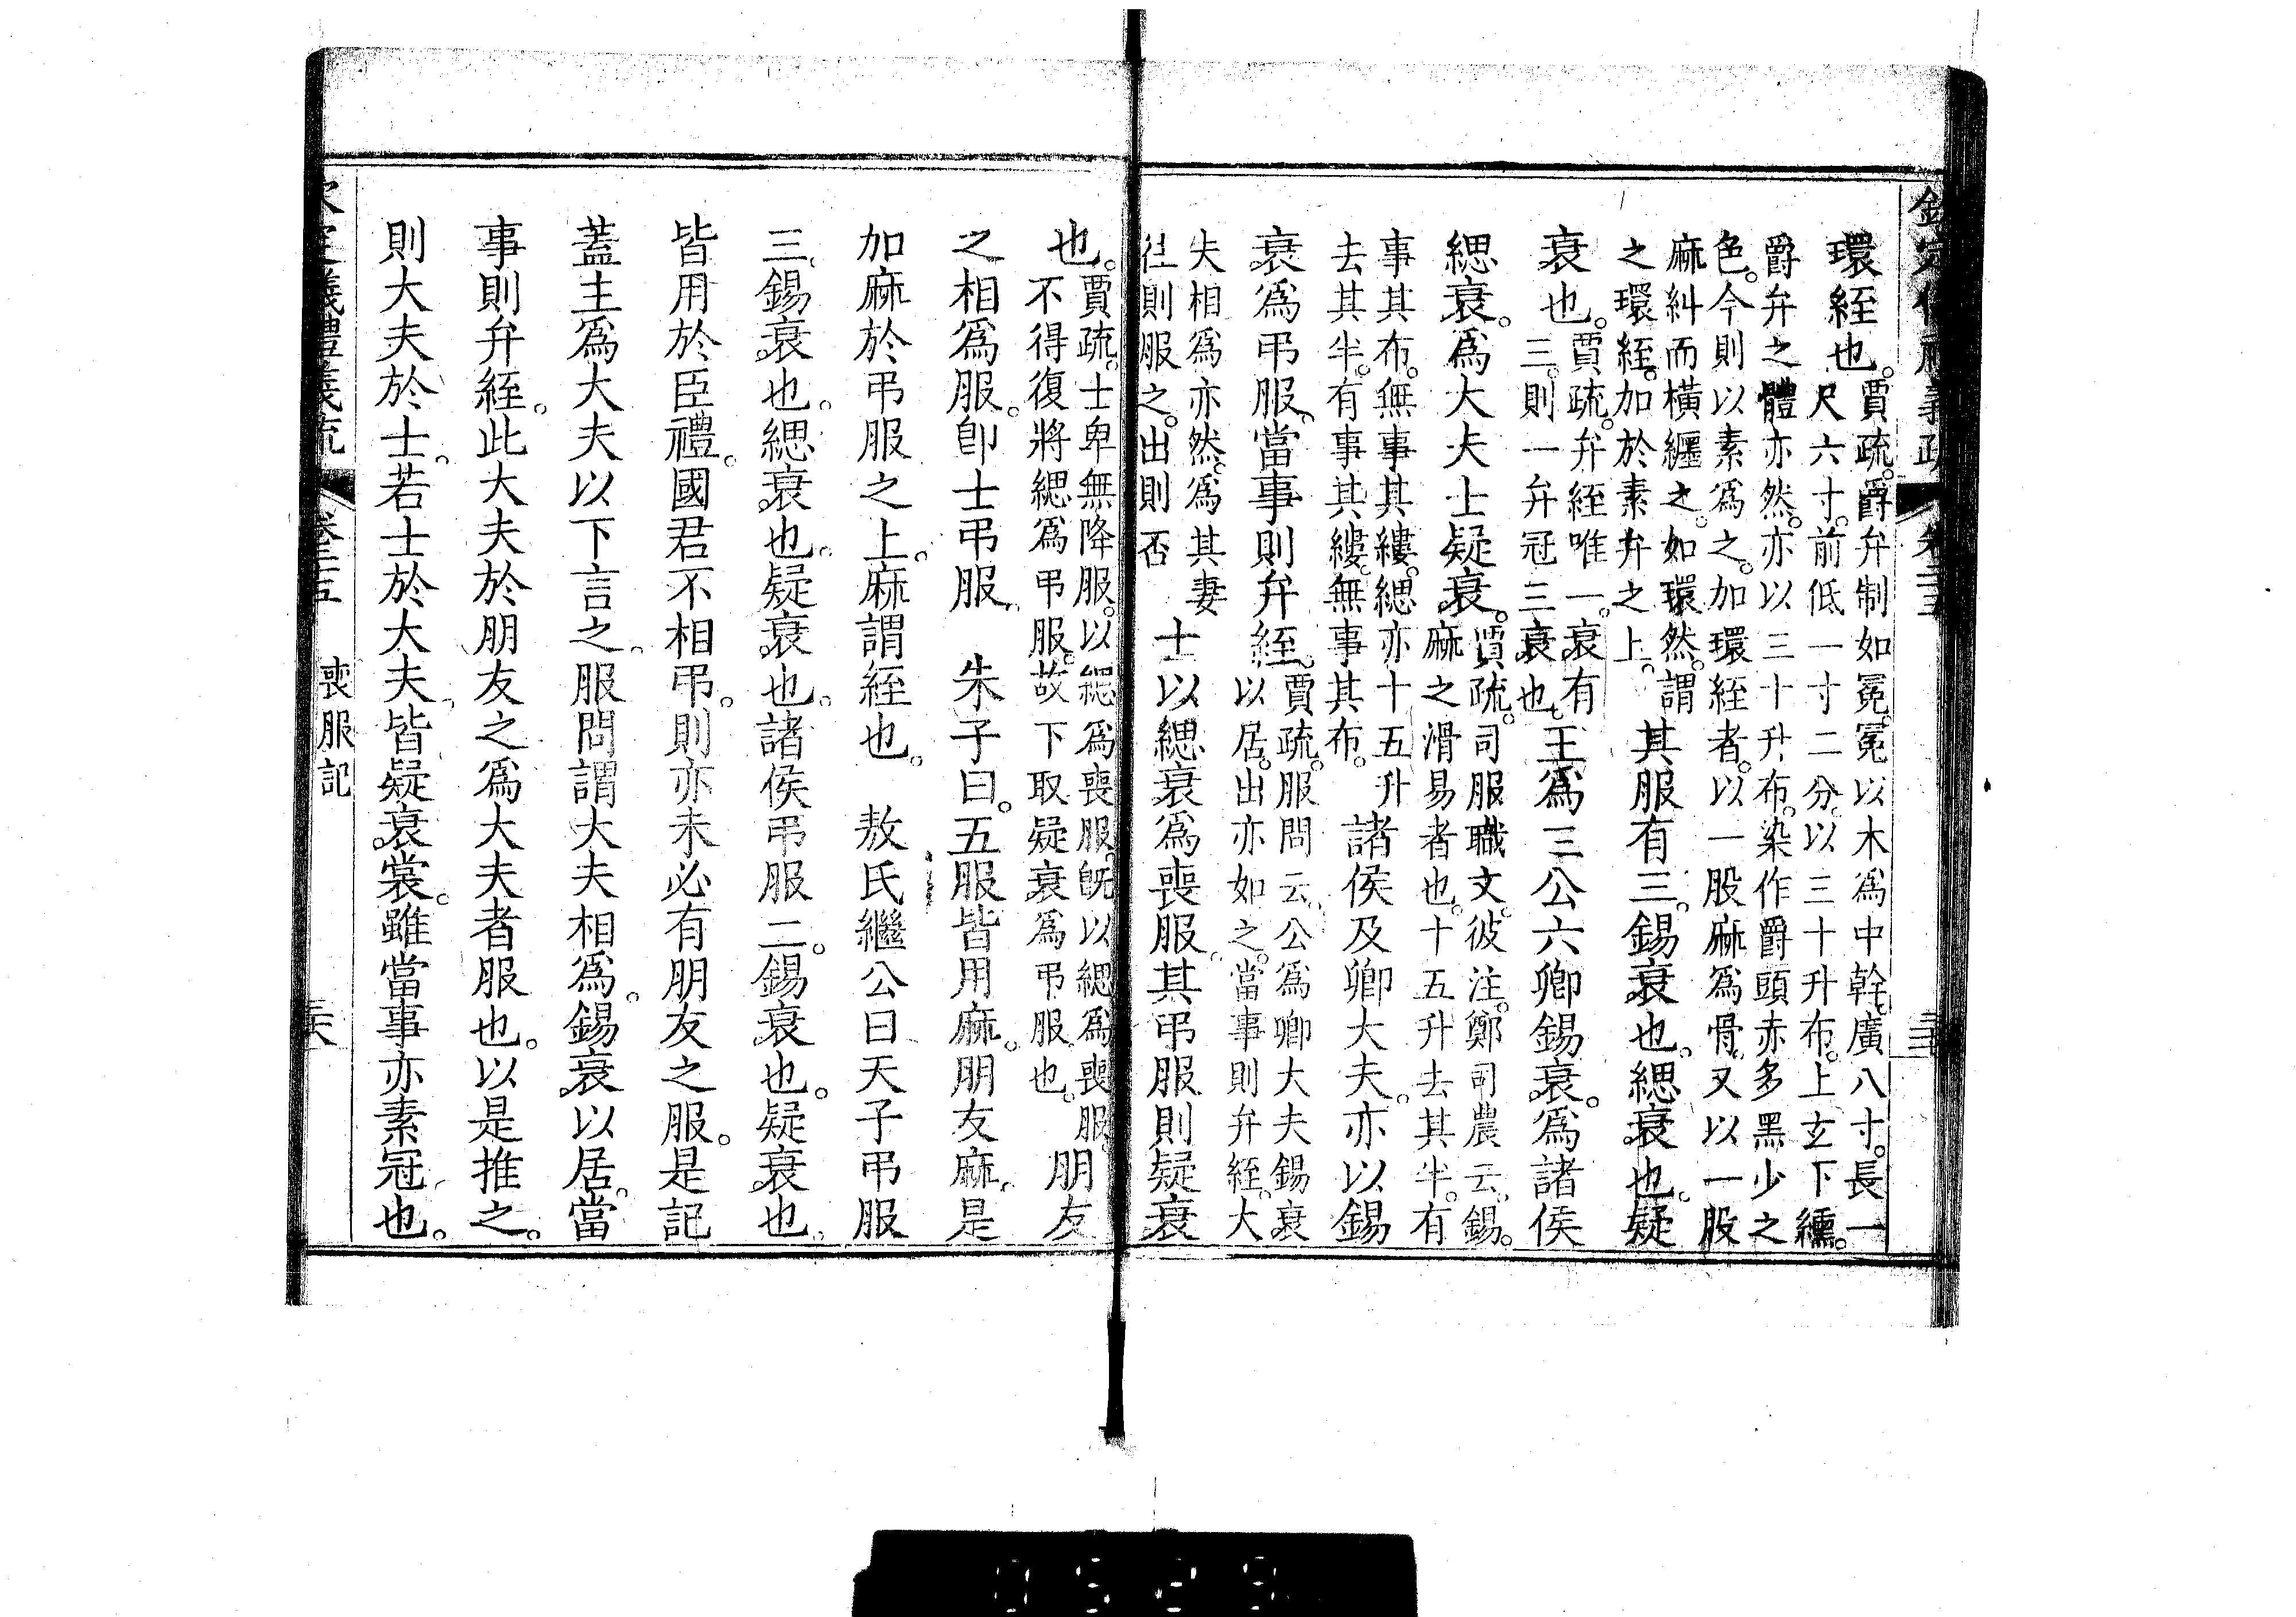 欽定儀禮義疏 卷二十五 三十五
環絰也。賈疏。爵弁制如冕。冕以木爲中幹。廣八寸。長一
尺六寸。前低一寸二分。以三十升布。上玄下纁。
爵弁之體亦然。亦以三十升布。染作爵頭赤多黑少之
色。今則以素爲之。加環絰者。以一股麻爲骨。又以一股
麻糾而橫纏之。如環然。謂
之環絰。加於素弁之上。其服有三。錫衰也。緦衰也。疑
衰也。賈疏。弁絰唯一。衰有
三。則一弁冠三衰也。王爲三公六卿錫衰。爲諸侯
緦衰。爲大夫士疑衰。賈疏。司服職文。彼注。鄭司農云。錫。
麻之滑易者也。十五升去其半。有
事其布。無事其縷。緦亦十五升
去其半。有事其縷。無事其布。諸侯及卿大夫。亦以錫
衰爲弔服。當事則弁絰。賈疏。服問云。公爲卿大夫錫衰
以居。出亦如之。當事則弁絰。大
夫相爲亦然。爲其妻
往則服之。出則否士以緦衰爲喪服。其弔服則疑衰
也。賈疏。士卑無降服。以緦爲喪服。旣以緦爲喪服。
不得復將緦爲弔服。故下取疑衰爲弔服也。朋友
之相爲服。卽士弔服。朱子曰。五服皆用麻。朋友麻。是
加麻於弔服之上。麻謂絰也。敖氏繼公曰天子弔服
三。錫衰也。緦衰也。疑衰也。諸侯弔服二。錫衰也。疑衰也。
皆用於臣禮。國君不相弔。則亦未必有朋友之服。是記
蓋主爲大夫以下言之。服問謂大夫相爲。錫衰以居。當
事則弁絰。此大夫於朋友之爲大夫者服也。以是推之。
則大夫於士。若士於大夫。皆疑衰裳。雖當事亦素冠也。
欽定儀禮義疏 卷二十五 喪服記 三十六